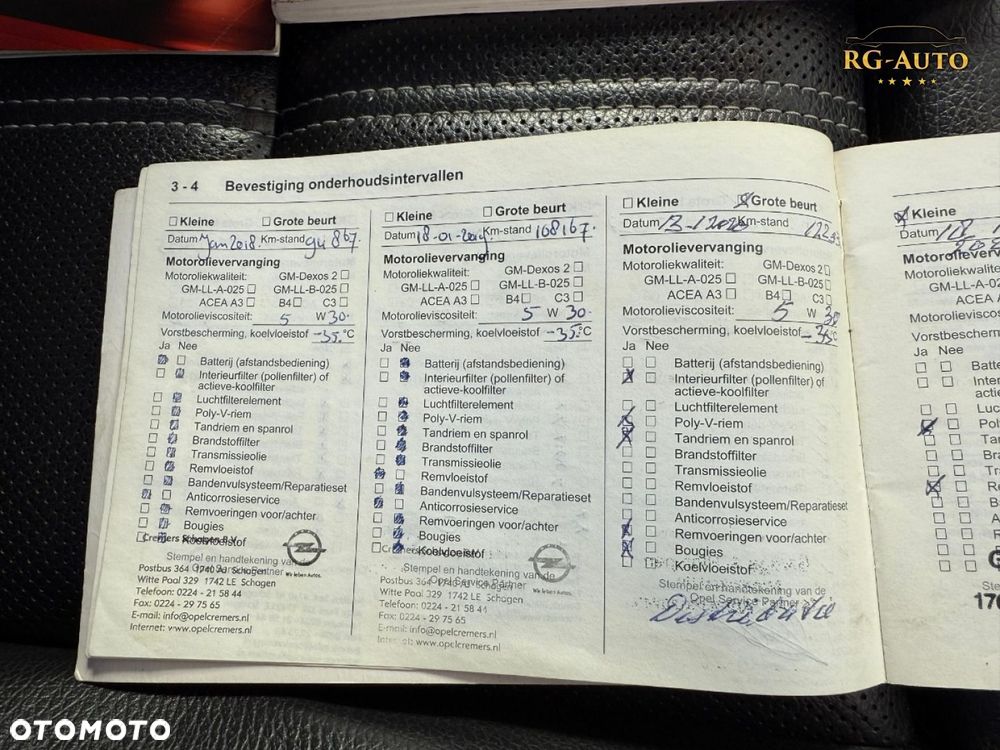 RG-AUTO
3 - 4 Bevestiging onderhoudsintervallen
Kleine Grote beurt
Datum Jan 2018. Km-stand 94867.
Motorolievervanging
Motoroliekwaliteit: GM-Dexos 2
GM-LL-A-025 GM-LL-B-025
ACEA A3 B4 C3
Motorolieviscositeit: 5 W 30.
Vorstbescherming, koelvloeistof -35.°C
Ja Nee
Batterij (afstandsbediening)
Interieurfilter (pollenfilter) of
actieve-koolfilter
Luchtfilterelement
Poly-V-riem
Tandriem en spanrol
Brandstoffilter
Transmissieolie
Remvloeistof
Bandenvulsysteem/Reparatieset
Anticorrosieservice
Remvoeringen voor/achter
Bougies
Koelvloeistof
Cremers Schagen B.V.
Stempel en handtekening van de
Opel Service Partner
Postbus 364 1740 AJ Schagen
Witte Paal 329 1742 LE Schagen
Telefoon: 0224 - 21 58 44
Fax: 0224 - 29 75 65
E-mail: info@opelcremers.nl
Internet: www.opelcremers.nl
Wir leben Autos.
Kleine Grote beurt
Datum 18-01-2019. Km-stand 108167.
Motorolievervanging
Motoroliekwaliteit: GM-Dexos 2
GM-LL-A-025 GM-LL-B-025
ACEA A3 B4 C3
Motorolieviscositeit: 5 W 30.
Vorstbescherming, koelvloeistof -35.°C
Ja Nee
Batterij (afstandsbediening)
Interieurfilter (pollenfilter) of
actieve-koolfilter
Luchtfilterelement
Poly-V-riem
Tandriem en spanrol
Brandstoffilter
Transmissieolie
Remvloeistof
Bandenvulsysteem/Reparatieset
Anticorrosieservice
Remvoeringen voor/achter
Bougies
Koelvloeistof
Stempel en handtekening van de
Opel Service Partner
Postbus 364 1740 AJ Schagen
Witte Paal 329 1742 LE Schagen
Telefoon: 0224 - 21 58 44
Fax: 0224 - 29 75 65
E-mail: info@opelcremers.nl
www.opelcremers.nl
Wir leben Autos.
Kleine Grote beurt
Datum 13-1-2020 Km-stand
Motorolievervanging
Motoroliekwaliteit: GM-Dexos 2
GM-LL-A-025 GM-LL-B-025
ACEA A3 B4 C3
Motorolieviscositeit: 5 W 30
Vorstbescherming, koelvloeistof -35°C
Ja Nee
Batterij (afstandsbediening)
Interieurfilter (pollenfilter) of
actieve-koolfilter
Luchtfilterelement
Poly-V-riem
Tandriem en spanrol
Brandstoffilter
Transmissieolie
Remvloeistof
Bandenvulsysteem/Reparatieset
Anticorrosieservice
Remvoeringen voor/achter
Bougies
Koelvloeistof
Stempel en handtekening van de
Opel Service Partner
Kleine
Datum
Motorolieve
Motoroliekwa
GM-LL-A
ACEA A
Motorolievisco
Vorstbescherm
Ja Nee
Batte
Inter
actie
Luc
Pol
Ta
Br
Tr
Re
B
A
R
B
K
Ste
170
OTOMOTO